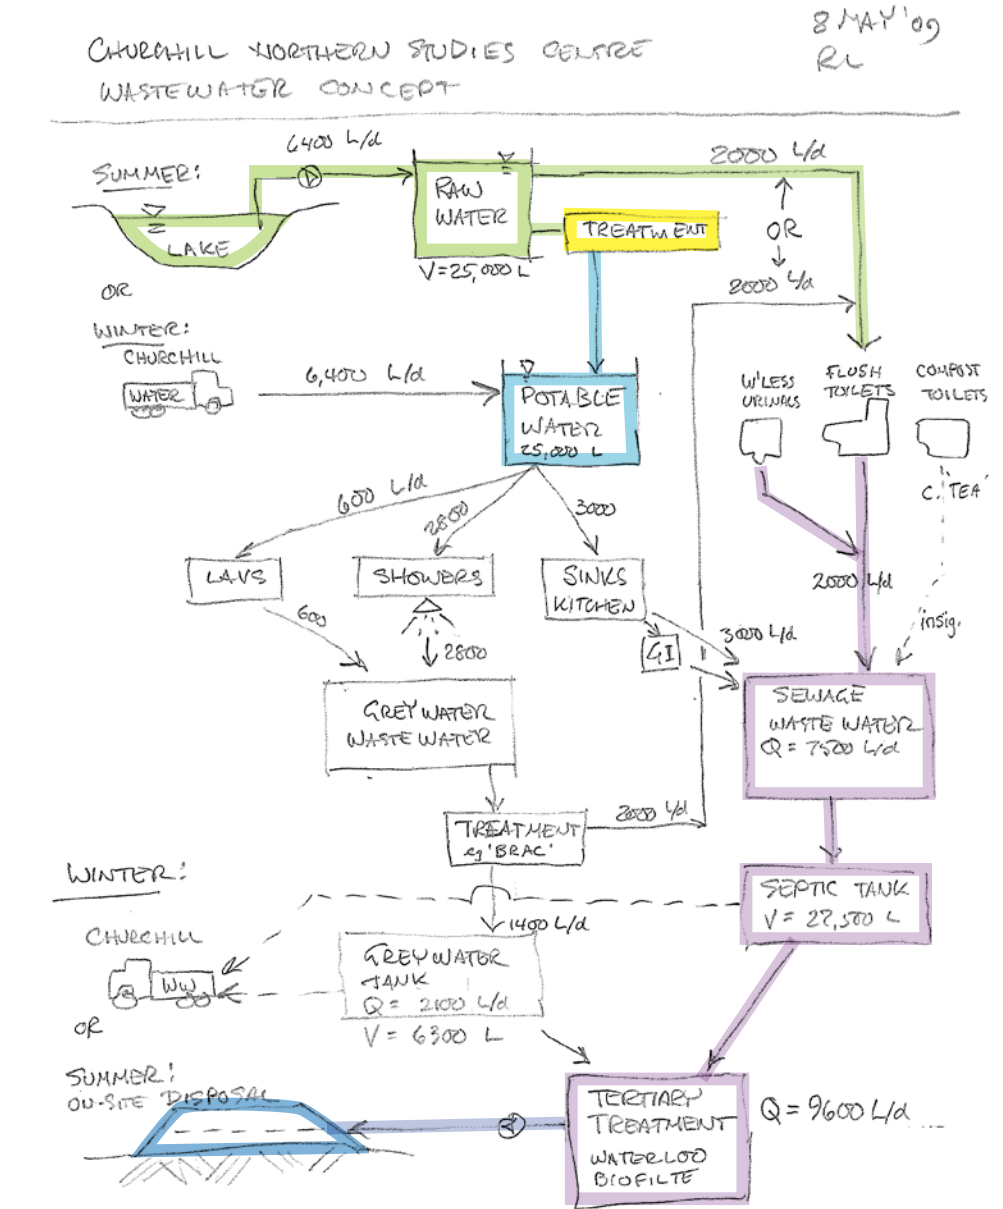 CHURCHILL NORTHERN STUDIES CENTRE
WASTEWATER CONCEPT
8 MAY '09
RL
SUMMER:
6400 L/d
2000 L/d
RAW
WATER
V=25,000 L
LAKE
TREATMENT
OR
2000 L/d
OR
WINTER:
CHURCHILL
WATER
6,400 L/d
POTABLE
WATER
25,000 L
W'LESS
URINALS
FLUSH
TOILETS
COMPOST
TOILETS
C. 'TEA'
600 L/d
2800
3000
LAVS
SHOWERS
SINKS
KITCHEN
2000 L/d
600
2800
GI
3000 L/d
insig.
GREYWATER
WASTEWATER
SEWAGE
WASTE WATER
Q = 7500 L/d
TREATMENT
eg 'BRAC'
2000 L/d
WINTER:
SEPTIC TANK
V = 27,500 L
1400 L/d
CHURCHILL
WW
GREYWATER
TANK
Q = 2100 L/d
V = 6300 L
OR
SUMMER:
ON-SITE DISPOSAL
TERTIARY
TREATMENT
WATERLOO
BIOFILTE
Q = 9600 L/d